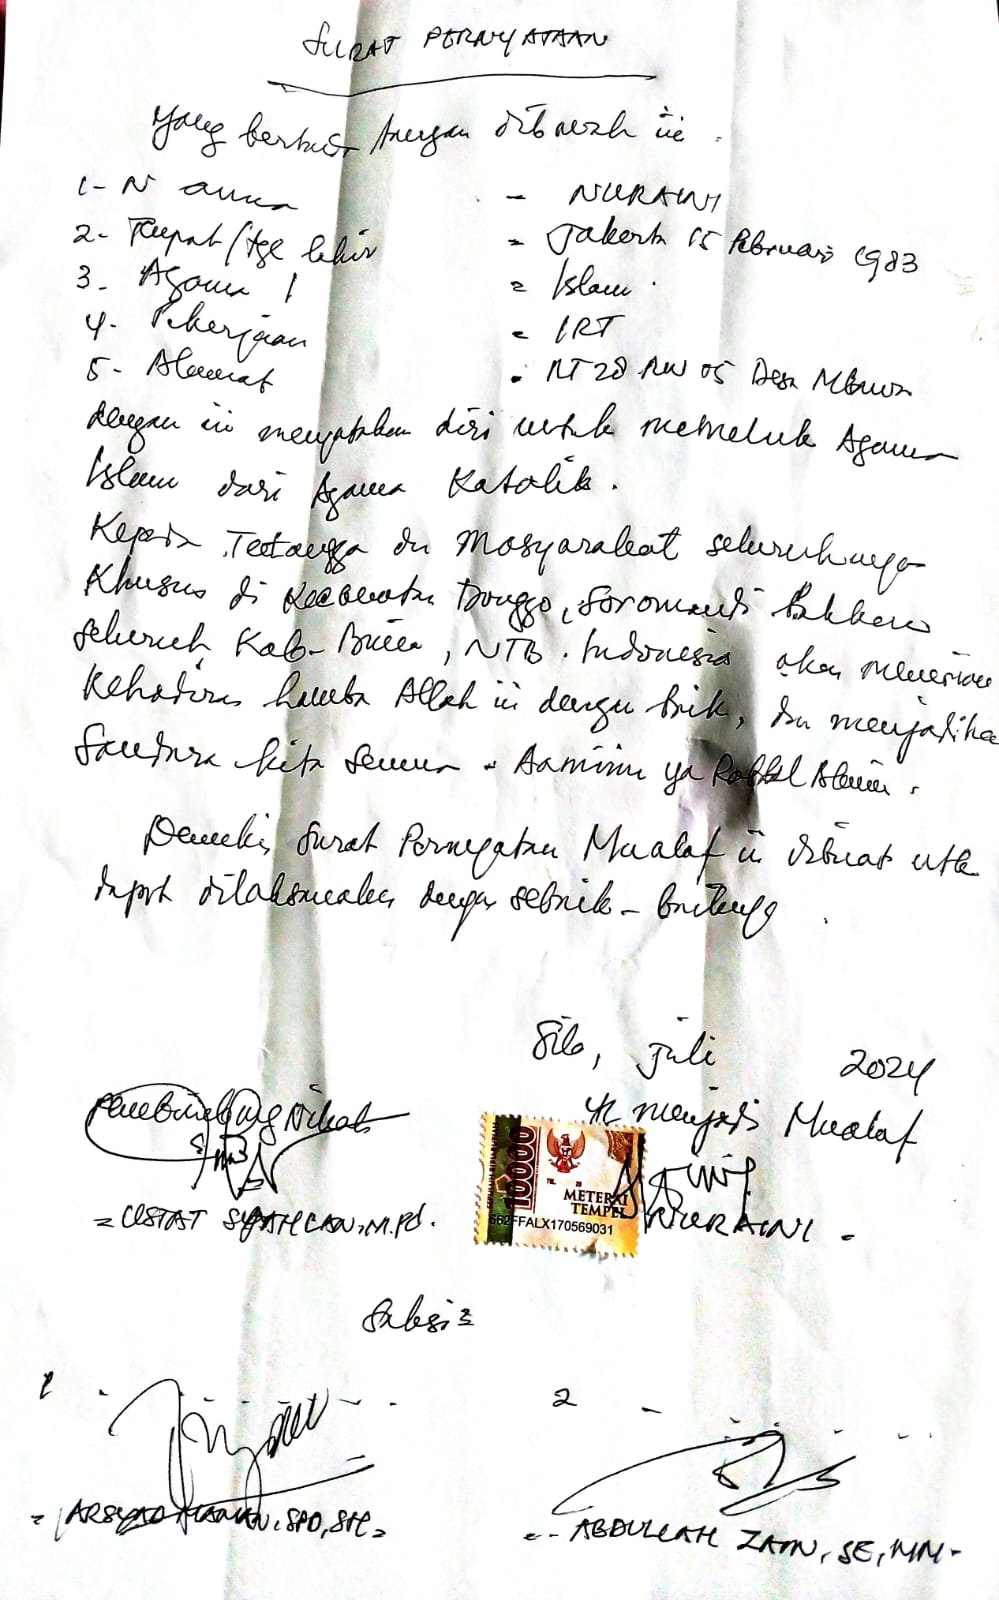 SURAT PERNYATAAN
Yang bertanda tangan dibawah ini
1- Nama - NURAINI
2- Tempat/tgl lahir - Jakarta 15 Februari 1983
3- Agama = Islam
4- Pekerjaan = IRT
5- Alamat RT 20 RW 05 Desa Mbawa
dengan ini menyatakan diri untuk memeluk Agama
Islam dari Agama Katolik.
Kepada Tetangga dn Masyarakat seluruhnya
Khusus di Kecamatan Donggo, Soromandi Bahkan
seluruh Kab-Bima, NTB. Indonesia akan menerima
Kehadiran hamba Allah ini dengan baik, dan menjadikan
Saudara kita semua - Aamiin ya Rabbal Alamin.
Demikian Surat Pernyataan Mualaf ini dibuat utk
dapat dilaksanakan dengan sebaik-baiknya
Sila, Juli 2024
Pembimbing Yg menjadi Mualaf
10000
METERAI
TEMPEL
FFALX170569031
= USTAT M.Pd. NURAINI -
Saksi =
1 2
= ARSYAD
ABDULLAH ZAIN, SE, MM-